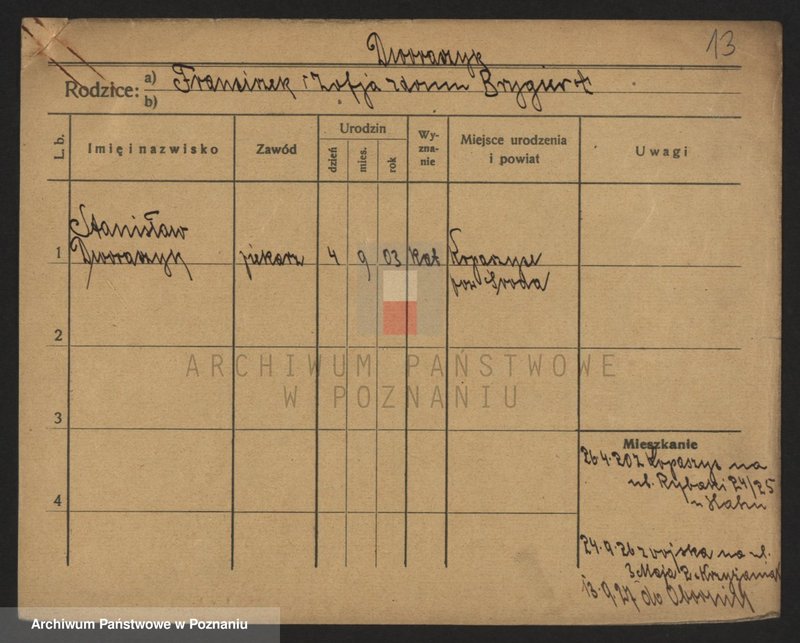 13
Dworaszyk
Rodzice: a) Franciszek i Zofja z domu Brygier †
b)
L. b. Imię i nazwisko Zawód Urodzin dzień mies. rok Wy-zna-nie Miejsce urodzenia i powiat Uwagi
1 Stanisław
Dworaszyk piekarz 4 9 03 kat Kopaszyce
pow Środa
2
ARCHIWUM PAŃSTWOWE
W POZNANIU
3
Mieszkanie
26.4.20 z Kopaszyc na
ul. Rybaki 24/25
u Hahn
4
24.9.26 z wojska na ul.
3 Maja 2
13.9.27 do Obornik
Archiwum Państwowe w Poznaniu